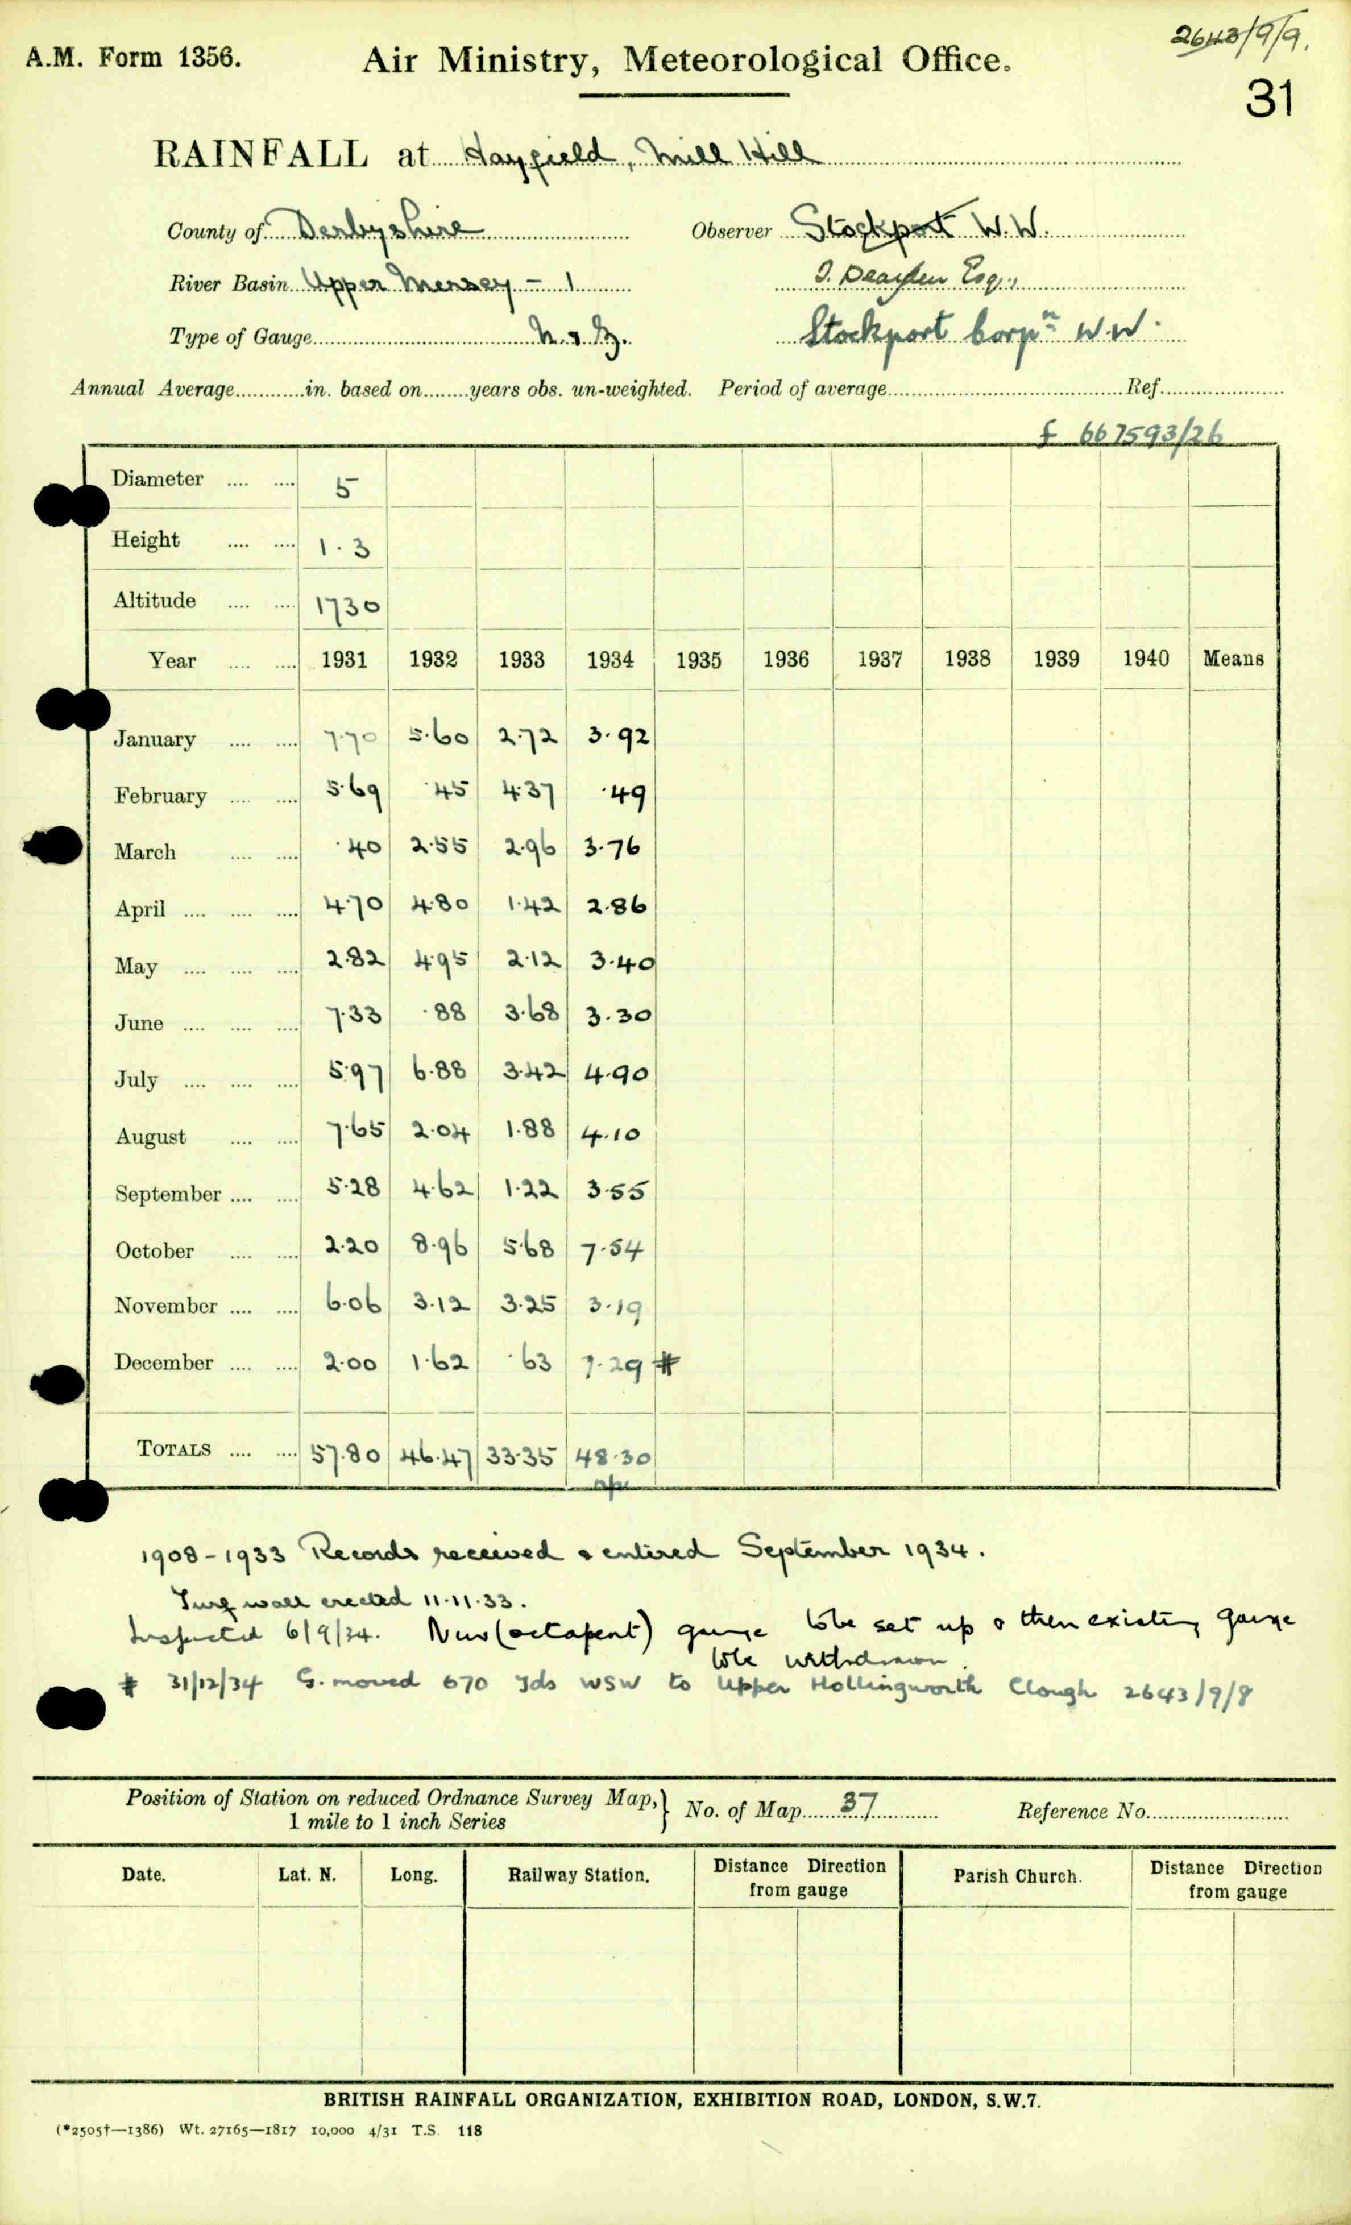 2643/9/9.
A.M. Form 1356. Air Ministry, Meteorological Office.
31
RAINFALL at Hayfield, Mill Hill
County of Derbyshire Observer Stockport W.W.
River Basin Upper Mersey - 1 Esq.,
Type of Gauge Stockport Corpn W.W.
Annual Average in. based on years obs. un-weighted. Period of average Ref.
£ 667593/26
Diameter 5
Height 1.3
Altitude 1730
Year 1931 1932 1933 1934 1935 1936 1937 1938 1939 1940 Means
January 7.70 5.60 2.72 3.92
February 5.69 .45 4.37 .49
March .40 2.55 2.96 3.76
April 4.70 4.80 1.42 2.86
May 2.82 4.95 2.12 3.40
June 7.33 .88 3.68 3.30
July 5.97 6.88 3.42 4.90
August 7.65 2.04 1.88 4.10
September 5.28 4.62 1.22 3.55
October 2.20 8.96 5.68 7.54
November 6.06 3.12 3.25 3.19
December 2.00 1.62 .63 7.29 #
TOTALS 57.80 46.47 33.35 48.30
1908-1933 Records received & entered September 1934.
Turf wall erected 11.11.33.
Inspected 6/9/34. New (octapent) gauge to be set up & then existing gauge
to be withdrawn.
# 31/12/34 G. moved 670 yds WSW to Upper Hollingworth Clough 2643/9/8
Position of Station on reduced Ordnance Survey Map, } No. of Map 37 Reference No.
1 mile to 1 inch Series
Date. Lat. N. Long. Railway Station. Distance Direction from gauge Parish Church. Distance Direction from gauge
BRITISH RAINFALL ORGANIZATION, EXHIBITION ROAD, LONDON, S.W.7.
(*2505†—1386) Wt. 27165—1817 10,000 4/31 T.S. 118